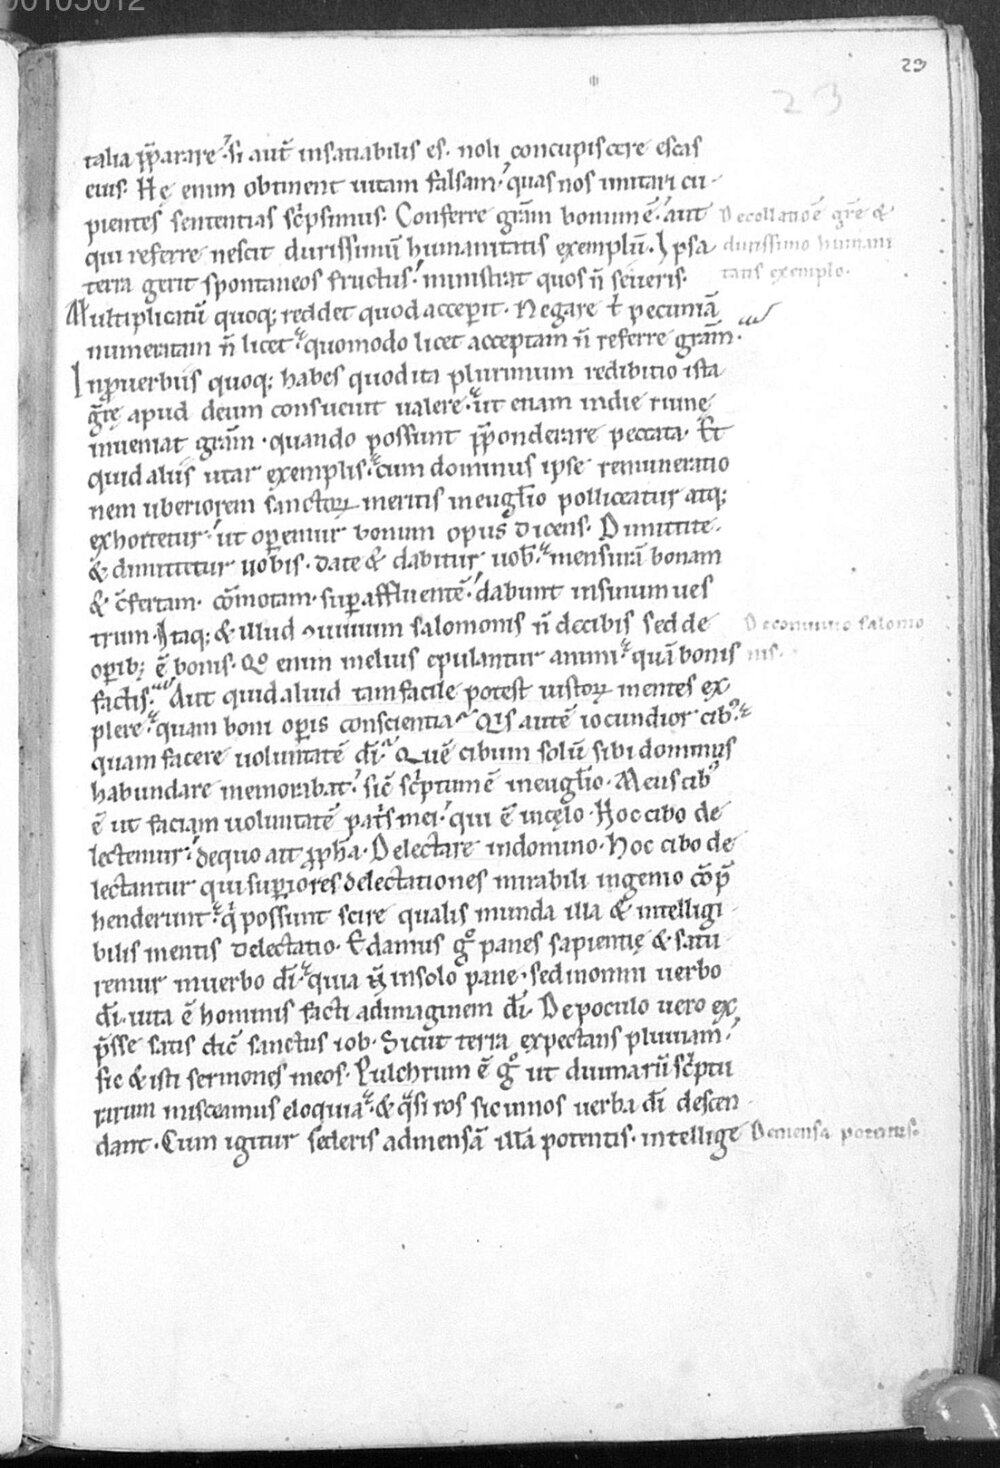 00105012
23
23
talia p̄parare. si aut̄ insatiabilis es. noli concupiscere escas
eius. Hę enim obtinent uitam falsam. quas nos imitari cu-
pientes sententias sc̄psimus. Conferre gr̄am bonum ē. aut
De collatiōe gr̄e &
qui referre nescit durissimū humanitatis exemplū. Ipsa
durissimo humani
terra gerit spontaneos fructus. ministrat quos n̄ seueris.
tatis exemplo.
Multiplicatū quoq; reddet quod acceperit. Negare t̄ pecuniā
numeratam n̄ licet. quomodo licet acceptam n̄ referre gr̄am.
In ꝓuerbiis quoq; habes quod ita plurimum redibitio ista
gr̄ę apud deum consueuit ualere. ut etiam in die ruinę
inueniat gr̄am. quando possunt p̄ponderare peccata. Et
quid aliis utar exemplis. cum dominus ipse remuneratio
nem uberiorem sanctoꝝ meritis in eugl̄io polliceatur atq;
exhortetur. ut operemur bonum opus dicens. Dimittite.
& dimittetur uobis. date & dabitur uob. mensurā bonam
& c̄fertam. cōmotam. superaffluentē. dabunt in sinum ues
trum. Itaq; & illud ꝯuiuium salomonis n̄ de cibis sed de
De conuiuio salomo
opib; ē bonis. Qo enim melius epulantur animi. quā bonis
nis.
factis. Aut quid aliud tam facile potest iustoꝝ mentes ex
plere. quam boni operis conscientia. Qis autē iocundior cib.
quam facere uoluntatē dī. Quē cibum solū sibi dominus
habundare memorabat. sic̄ sc̄ptum ē in eugl̄io. Meus cib
ē ut faciam uoluntatē pat̄s mei. qui ē in cęlo. Hoc cibo de
lectemur. de quo ait ꝓph̄a. Delectare in domino. Hoc cibo de
lectantur qui superiores delectationes mirabili ingenio cōp̄
henderunt. q̄ possunt scire qualis munda illa & intelligi
bilis mentis delectatio. Edamus g̊ panes sapientię & satu
remur in uerbo dī. quia n̄ in solo pane. sed in omni uerbo
dī. uita ē hominis facti ad imaginem dī. De poculo uero ex
p̄sse satis dic̄ sanctus iob. Sicut terra expectans pluuiam.
sic & isti sermones meos. Pulchrum ē g̊ ut diuinarū sc̄ptu
rarum misceamus eloquia. & q̄si ros sic in nos uerba dī descen
dant. Cum igitur sederis ad mensā illā potentis. intellige
De mensa potentis.